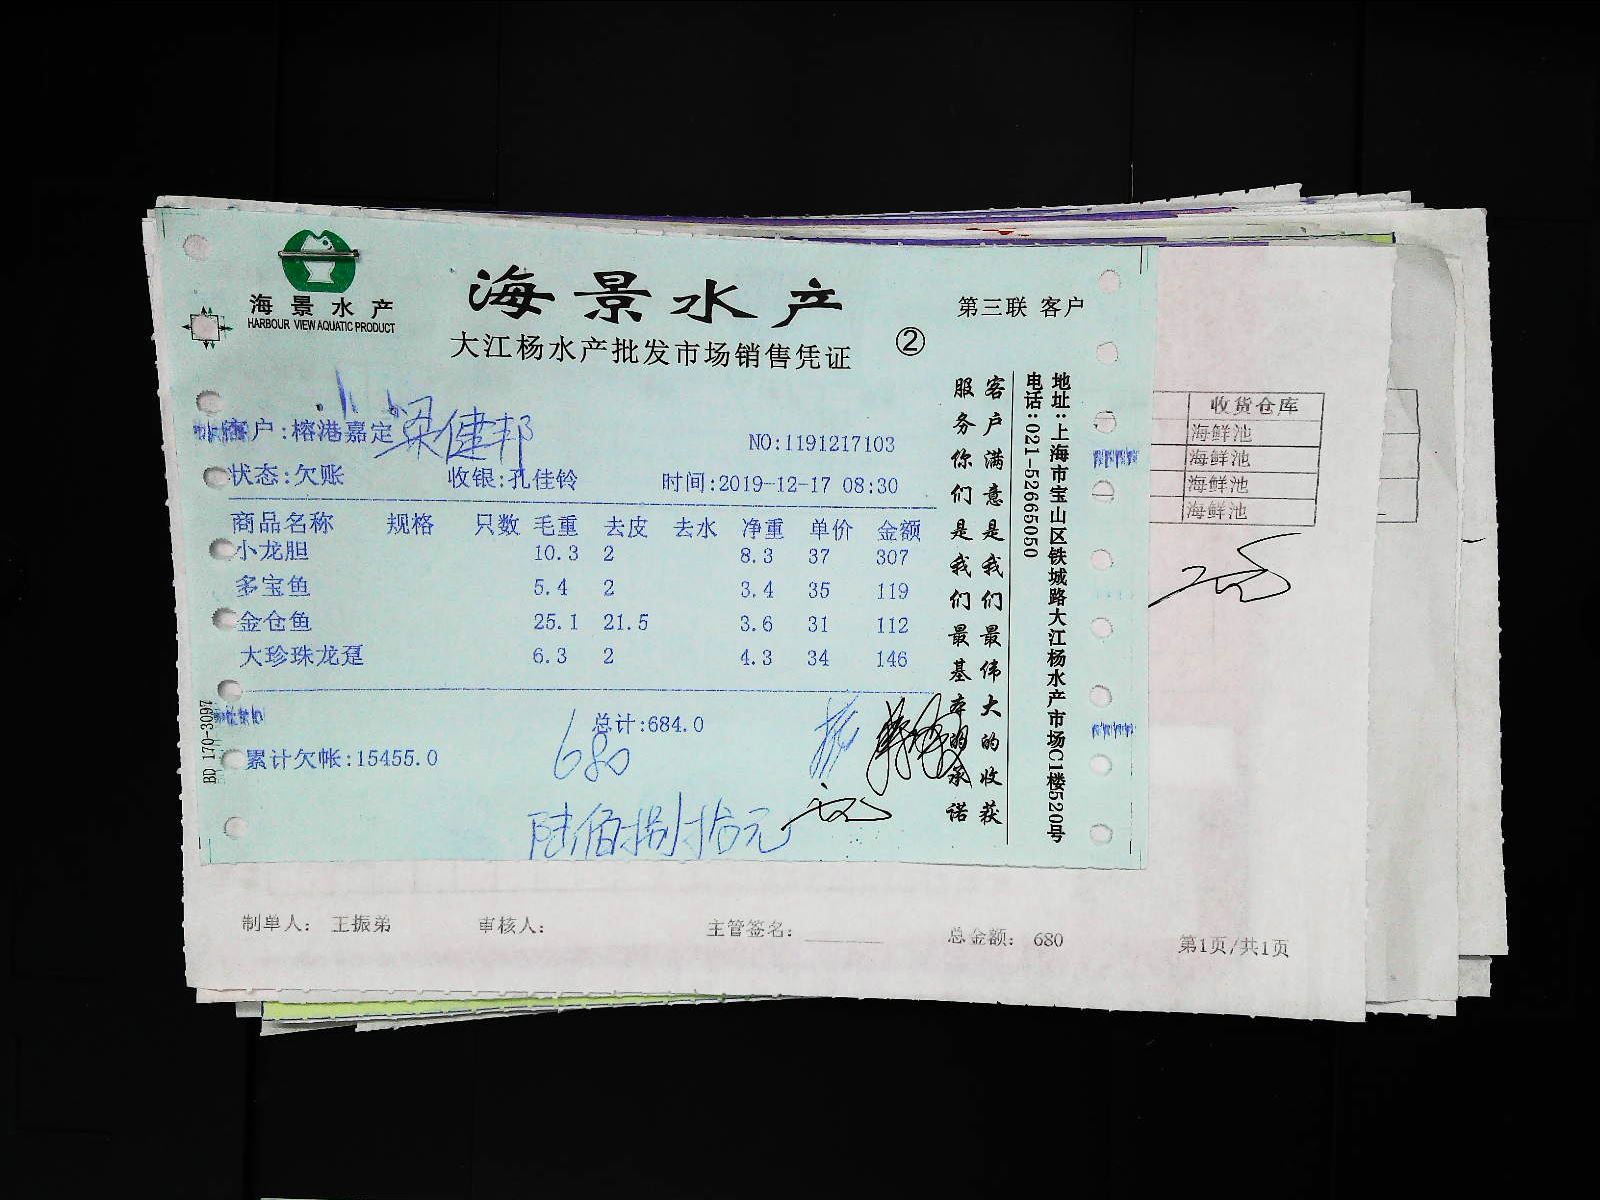 海景水产
HARBOUR VIEW AQUATIC PRODUCT
海景水产
大江杨水产批发市场销售凭证
②
第三联 客户
客户:榕港嘉定 梁健邦
NO:1191217103
状态:欠账 收银:孔佳铃 时间:2019-12-17 08:30
商品名称 规格 只数 毛重 去皮 去水 净重 单价 金额
小龙胆 10.3 2 8.3 37 307
多宝鱼 5.4 2 3.4 35 119
金仓鱼 25.1 21.5 3.6 31 112
大珍珠龙趸 6.3 2 4.3 34 146
总计:684.0
累计欠帐:15455.0
680
陆佰捌拾元
客户满意是我们最伟大的收获
服务你们是我们最基本的承诺
地址:上海市宝山区铁城路大江杨水产市场C1楼520号
电话:021-52665050
BD 170-3097
收货仓库
海鲜池
海鲜池
海鲜池
海鲜池
制单人: 王振弟 审核人: 主管签名: 总金额: 680 第1页/共1页